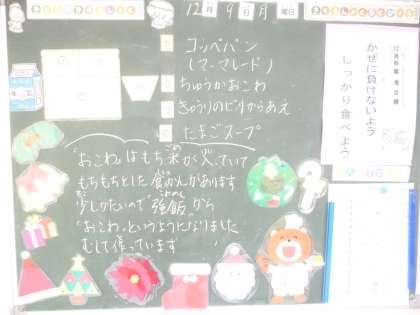 12月 9日 月曜日
コッペパン
(マーマレード)
ちゅうかおこわ
きゅうりのピリからあえ
たまごスープ
「おこわ」はもち米が入っていて
もちもちとした食かんがあります
少しかたいので"強飯"から
「おこわ」というようになりました
むして作っています
かぜに負けないよう
しっかり食べよう